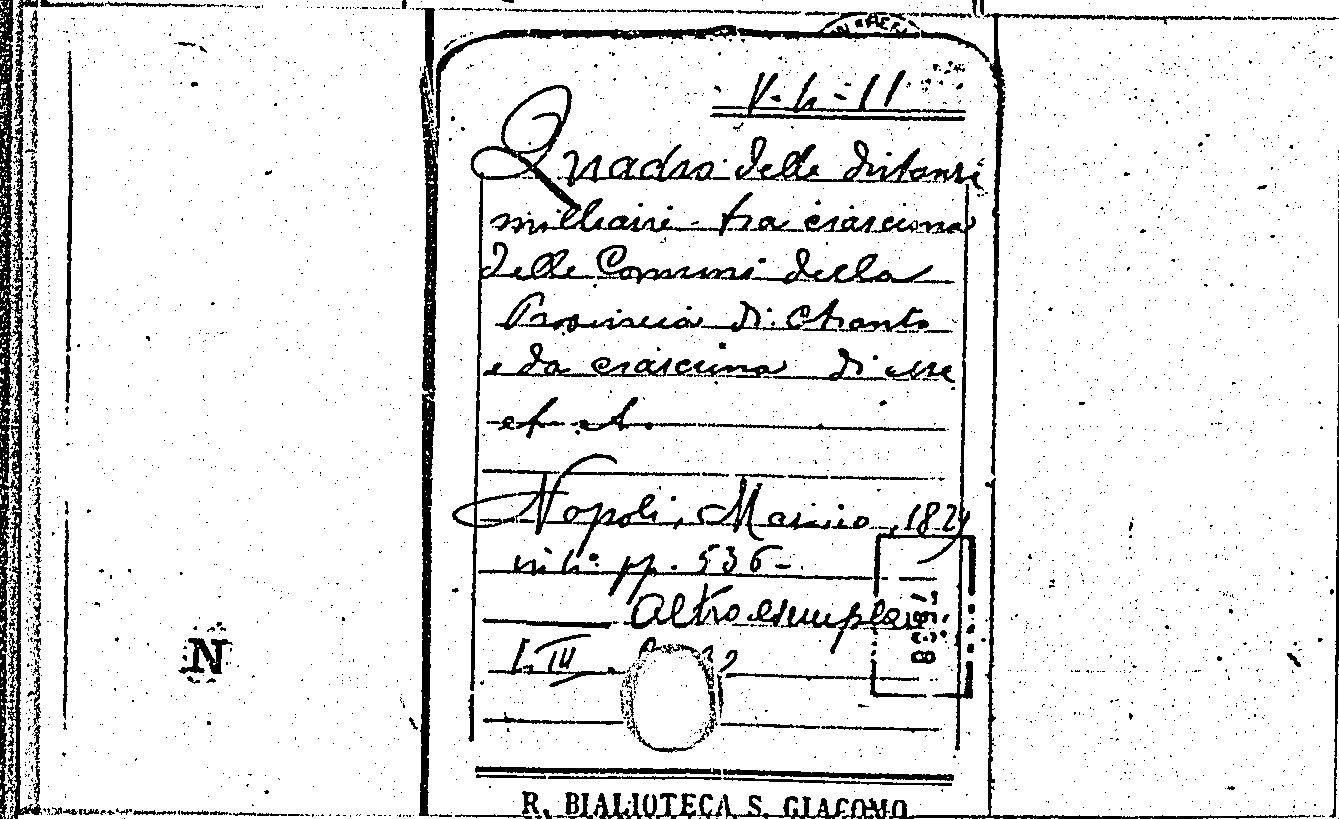 V-h-11
Quadro delle distanze
milliarie tra ciascuna
delle Comuni della
Provincia di Otranto
e da ciascuna di esse
Napoli, Marino, 1829
in h° pp. 536-
altro esemplare
N
R. BIALIOTECA S. GIACOMO